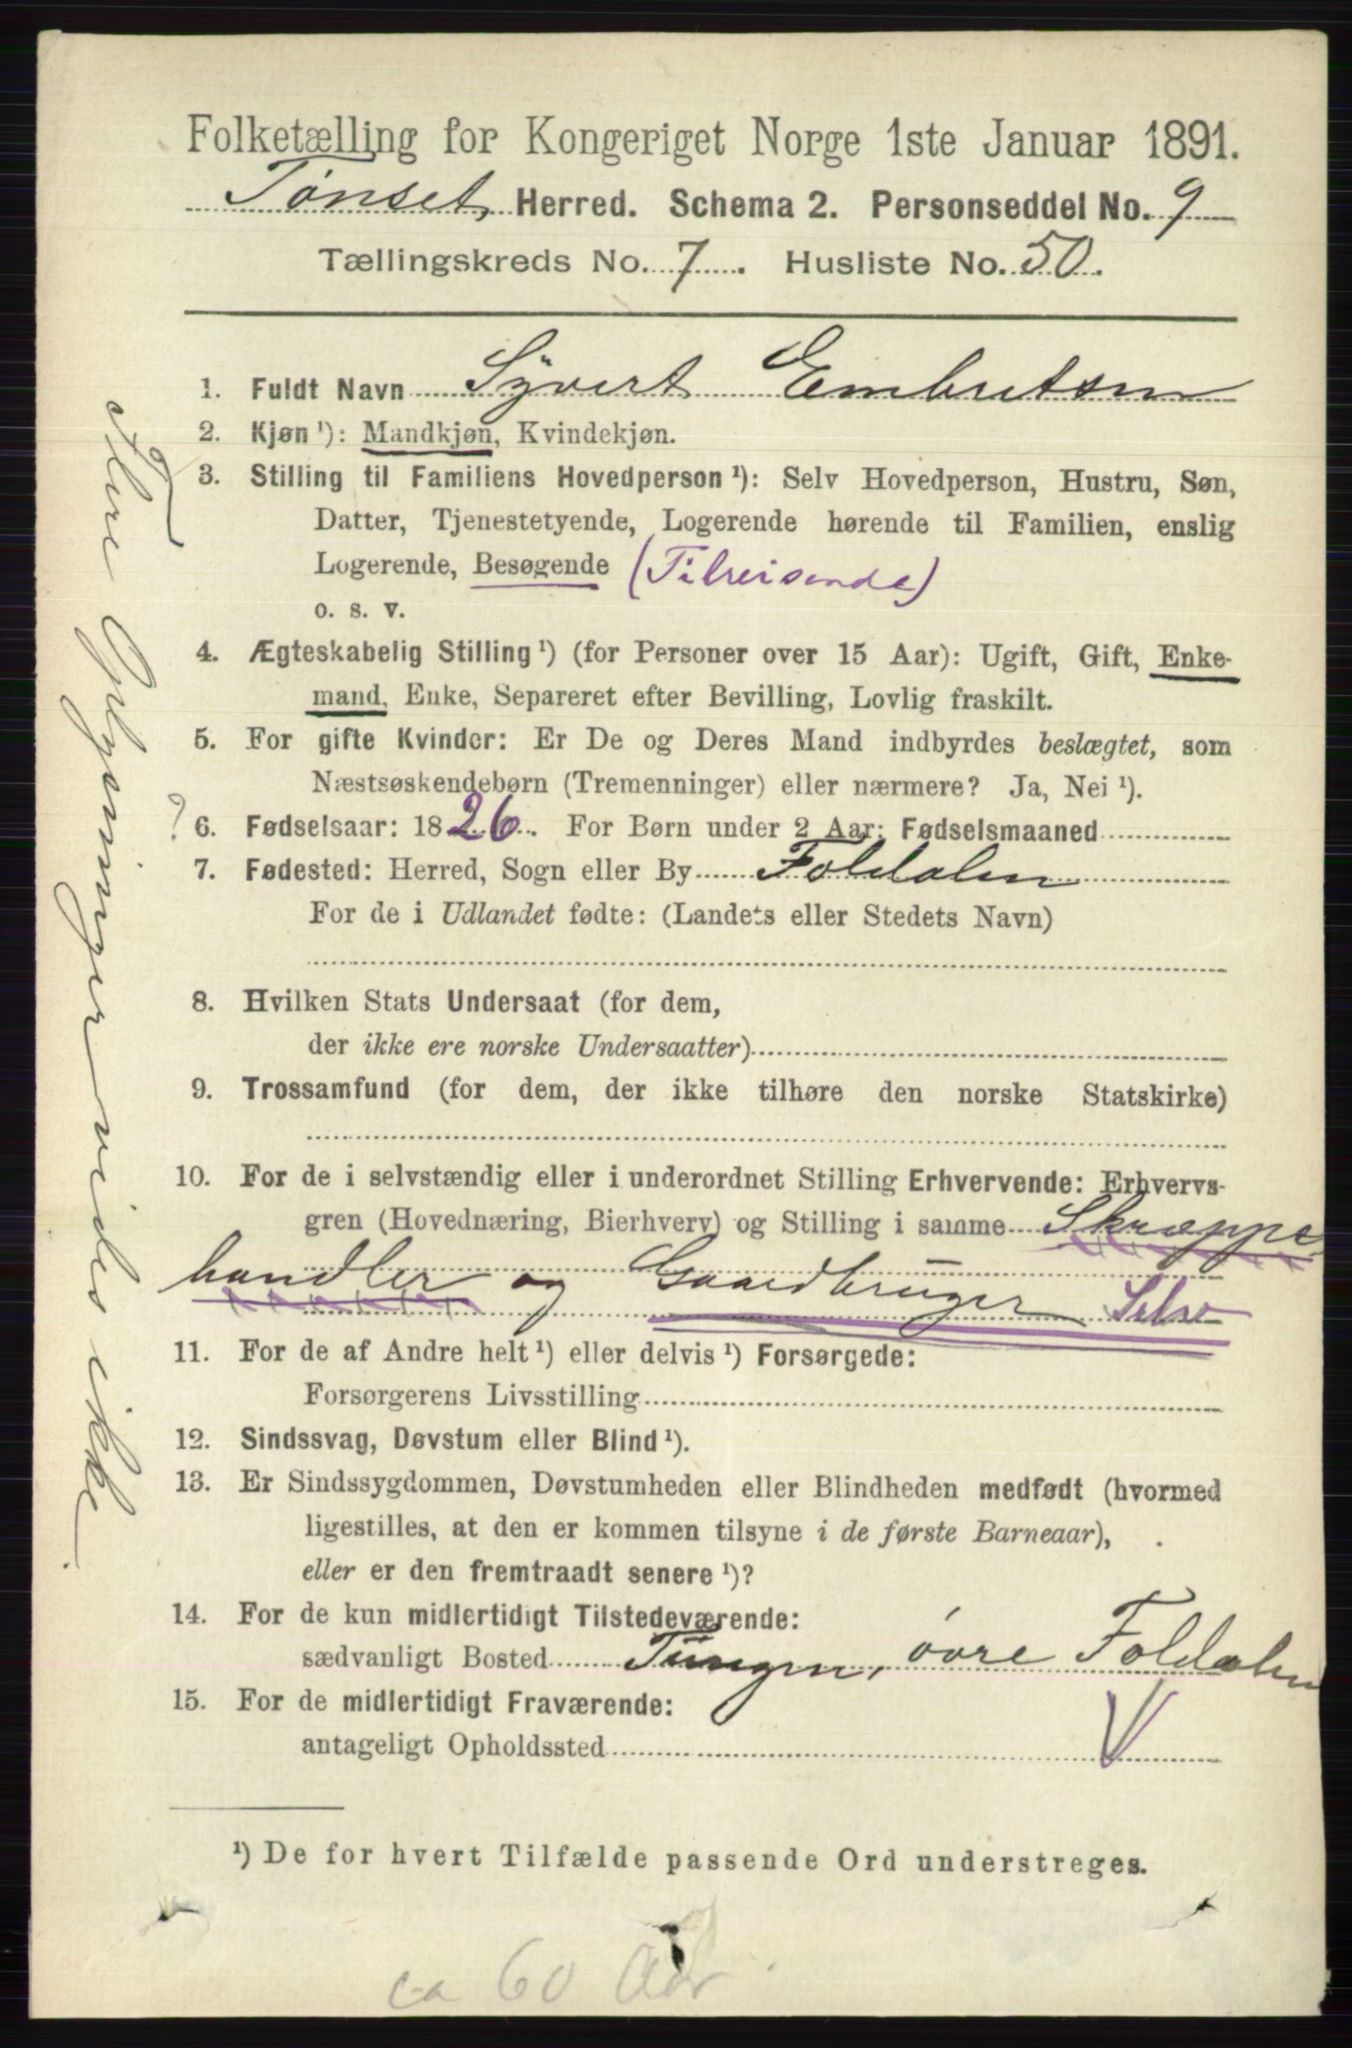 Folketælling for Kongeriget Norge 1ste Januar 1891.
Tønset Herred. Schema 2. Personseddel No. 9
Tællingskreds No. 7. Husliste No. 50.
1. Fuldt Navn Syvert Embretsen
2. Kjøn ¹): Mandkjøn, Kvindekjøn.
3. Stilling til Familiens Hovedperson ¹): Selv Hovedperson, Hustru, Søn,
Datter, Tjenestetyende, Logerende hørende til Familien, enslig
Logerende, Besøgende (Tilreisende)
o. s. v.
4. Ægteskabelig Stilling ¹) (for Personer over 15 Aar): Ugift, Gift, Enke-
mand, Enke, Separeret efter Bevilling, Lovlig fraskilt.
5. For gifte Kvinder: Er De og Deres Mand indbyrdes beslægtet, som
Næstsøskendebørn (Tremenninger) eller nærmere? Ja, Nei ¹).
? 6. Fødselsaar: 1826. For Børn under 2 Aar: Fødselsmaaned
7. Fødested: Herred, Sogn eller By Foldalen
For de i Udlandet fødte: (Landets eller Stedets Navn)
8. Hvilken Stats Undersaat (for dem,
der ikke ere norske Undersaatter)
9. Trossamfund (for dem, der ikke tilhøre den norske Statskirke)
10. For de i selvstændig eller i underordnet Stilling Erhvervende: Erhvervs-
gren (Hovednæring, Bierhverv) og Stilling i samme Skræppe
handler og Gaardbruger Selv
11. For de af Andre helt ¹) eller delvis ¹) Forsørgede:
Forsørgerens Livsstilling
12. Sindssvag, Døvstum eller Blind ¹).
13. Er Sindssygdommen, Døvstumheden eller Blindheden medfødt (hvormed
ligestilles, at den er kommen tilsyne i de første Barneaar),
eller er den fremtraadt senere ¹)?
14. For de kun midlertidigt Tilstedeværende:
sædvanligt Bosted Tungen, øvre Foldalen
15. For de midlertidigt Fraværende:
antageligt Opholdssted
V
¹) De for hvert Tilfælde passende Ord understreges.
ca 60 Aar
Flere Oplysninger vides ikke.